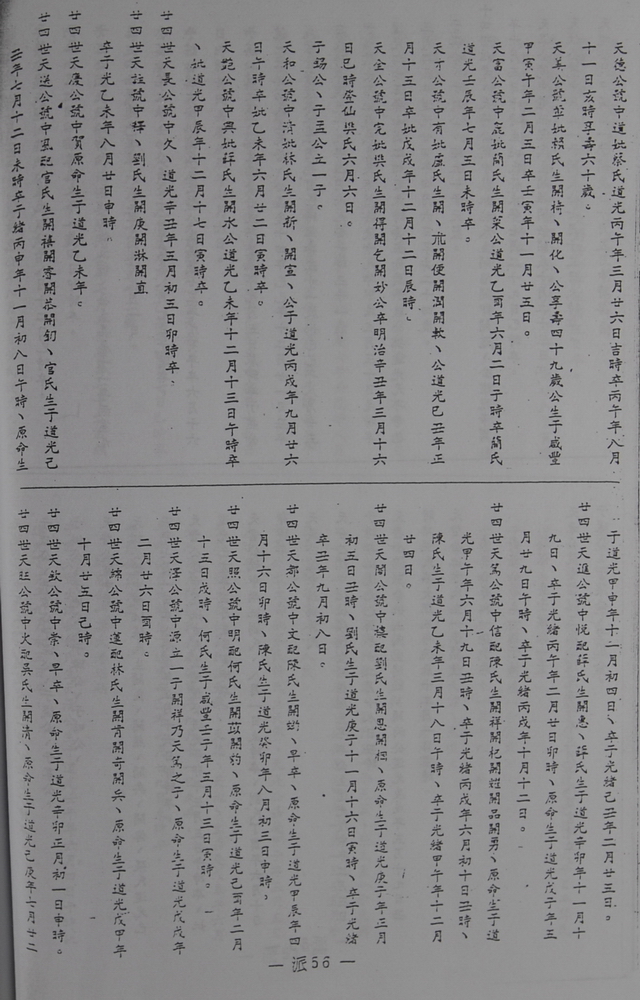 天德公號中道妣蔡氏道光丙午年三月廿六日吉時卒丙午年八月
十一日亥時享壽六十歲。
天美公號華妣賴氏生開椅、開化、公享壽四十九歲公生于咸豐
甲寅午年二月三日卒壬寅年十一月廿五日。
天富公號中庇妣簡氏生開菜公道光乙酉年六月二日子時卒簡氏
道光壬辰年七月三日未時卒。
天才公號中有妣盧氏生開、開便開潤開軟、公道光巳丑年正
月十三日卒妣戊戌年十二月十二日辰時。
天全公號中完妣吳氏生開得開乞開妙公卒明治辛丑年三月十六
日巳時登仙吳氏六月六日。
子錫公、于三公立一子。
天和公號中清妣林氏生開新、開宣、公于道光丙戌年九月廿六
日午時卒妣乙未年六月廿二日寅時卒。
天艷公號中興妣許氏生開水公道光乙未年十二月十三日午時卒
、妣道光甲辰年十二月十七日寅時卒。
廿四世天長公號中久、道光辛丑年三月初三日卯時卒。
廿四世天註號中擇、劉氏生開庚開淋開直
卒于光乙未年八月廿日申時。
廿四世天慶公號中賀原命生于道光乙未年。
廿四世天送公號中恩配官氏生開禧開春開恭開釗、官氏生于道光己
亥年七月十二日未時卒于緒丙申年十一月初八日午時、原命生
于道光甲申年十一月初四日、卒于光緒己丑年二月廿三日。
廿四世天進公號中悅配許氏生開惠、許氏生于道光辛卯年十一月十
九日、卒于光緒丙午年二月廿日卯時、原命生于道光戊子年三
月廿九日午時、卒于光緒丙戌年十月十二日。
廿四世天篤公號中信配陳氏生開祥開杞開鎧開品開勇、原命生于道
光甲午年六月十九日丑時、卒于光緒丙戌年六月初十日丑時、
陳氏生于道光乙未年三月十八日午時、卒于光緒甲午年十二月
廿四日。
廿四世天闊公號中樓配劉氏生開恩開柳、原命生于道光庚子年正月
初五日丑時、劉氏生于道光庚子十一月十六日寅時、卒于光緒
辛丑年九月初八日。
廿四世天都公號中文配陳氏生開蚶、早卒、原命生于道光甲辰年四
月十六日卯時、陳氏生于道光癸卯年八月初三日申時。
廿四世天照公號中明配何氏生開茲開約、原命生于道光己酉年二月
十三日戌時、何氏生于咸豐壬子年三月十三日寅時。
廿四世天澤公號中源立一子開祥乃天篤之子、原命生于道光戊戌年
二月廿六日酉時。
廿四世天綿公號中蓬配林氏生開肯開奇開兵、原命生于道光戊甲年
十月廿五日己時。
廿四世天欽公號中崇、早卒、原命生于道光辛卯正月初一日申時。
廿四世天旺公號中火配吳氏生開清、原命生于道光己庚年七月廿二
— 派56 —